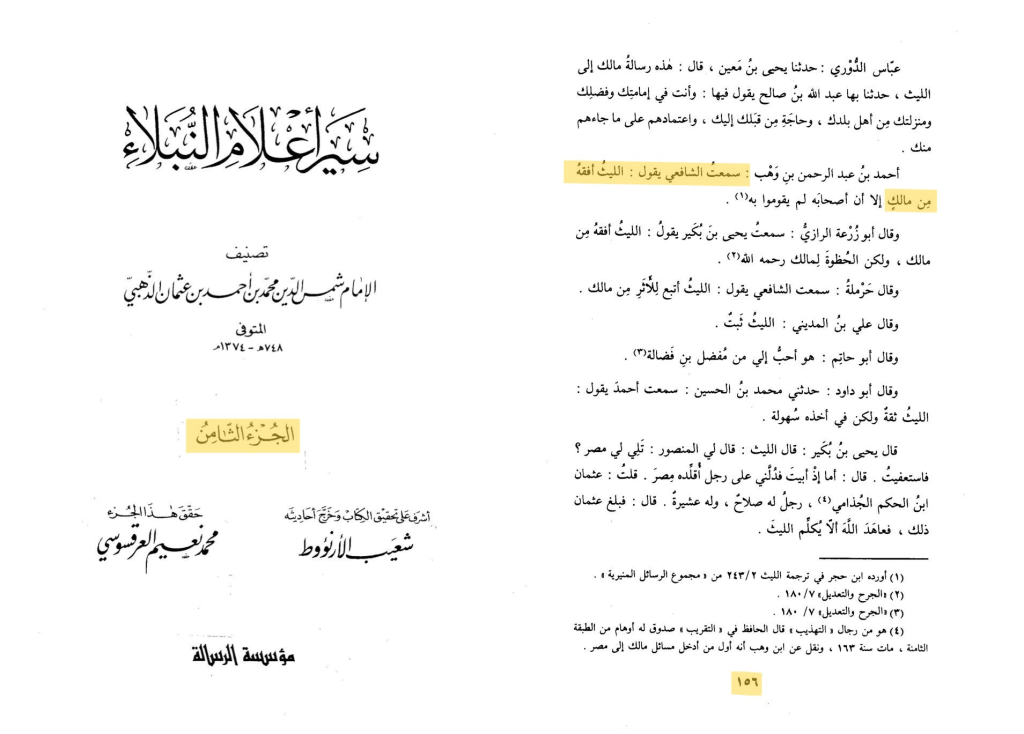 سير أعلام النبلاء
تصنيف
الإمام شمس الدين محمد بن أحمد بن عثمان الذهبي
المتوفى
٧٤٨هـ - ١٣٧٤م
الجزء الثامن
أشرف على تحقيق الكتاب وخرج أحاديثه
شعيب الأرنؤوط
حقق هذا الجزء
محمد نعيم العرقسوسي
مؤسسة الرسالة
عبّاس الدُّوْري : حدثنا يحيى بنُ مَعين ، قال : هٰذه رسالةُ مالك إلى
الليث ، حدثنا بها عبد الله بنُ صالح يقول فيها : وأنت في إمامتِك وفضلِك
ومنزلتك مِن أهل بلدك ، وحاجَةِ مِن قِبَلك إليك ، واعتمادهم على ما جاءهم
منك .
أحمد بنُ عبد الرحمن بنِ وَهْب : سمعتُ الشافعي يقول : الليثُ أفقهُ
مِن مالكٍ إلا أن أصحابَه لم يقوموا به(١) .
وقال أبو زُرْعة الرازيُّ : سمعتُ يحيى بنَ بُكَير يقولُ : الليثُ أفقهُ مِن
مالك ، ولكن الحُظوةَ لِمالك رحمه الله(٢) .
وقال حَرْملةُ : سمعت الشافعي يقول : الليثُ أتبع لِلْأثرِ مِن مالك .
وقال علي بنُ المديني : الليثُ ثَبتٌ .
وقال أبو حاتِم : هو أحبُّ إلي من مُفضل بنِ فَضالة(٣) .
وقال أبو داود : حدثني محمد بنُ الحسين : سمعت أحمدَ يقول :
الليثُ ثقةٌ ولكن في أخذه سُهولة .
قال يحيى بنُ بُكَير : قال الليث : قال لي المنصور : تَلِي لي مصر ؟
فاستعفيتُ . قال : أما إذْ أبيتَ فدُلَّني على رجل أُقلِّده مِصرَ . قلتُ : عثمان
ابنُ الحكم الجُذامي(٤) ، رجلُ له صلاحٌ ، وله عشيرةٌ . قال : فبلغ عثمان
ذلك ، فعاهَدَ اللَّهَ ألّا يُكلِّم الليثَ .
(١) أورده ابن حجر في ترجمة الليث ٢٤٣/٢ من « مجموع الرسائل المنيرية » .
(٢) «الجرح والتعديل» ١٨٠/٧ .
(٣) «الجرح والتعديل» ٧/ ١٨٠ .
(٤) هو من رجال « التهذيب » قال الحافظ في « التقريب » صدوق له أوهام من الطبقة
الثامنة ، مات سنة ١٦٣ ، ونقل عن ابن وهب أنه أول من أدخل مسائل مالك إلى مصر .
١٥٦